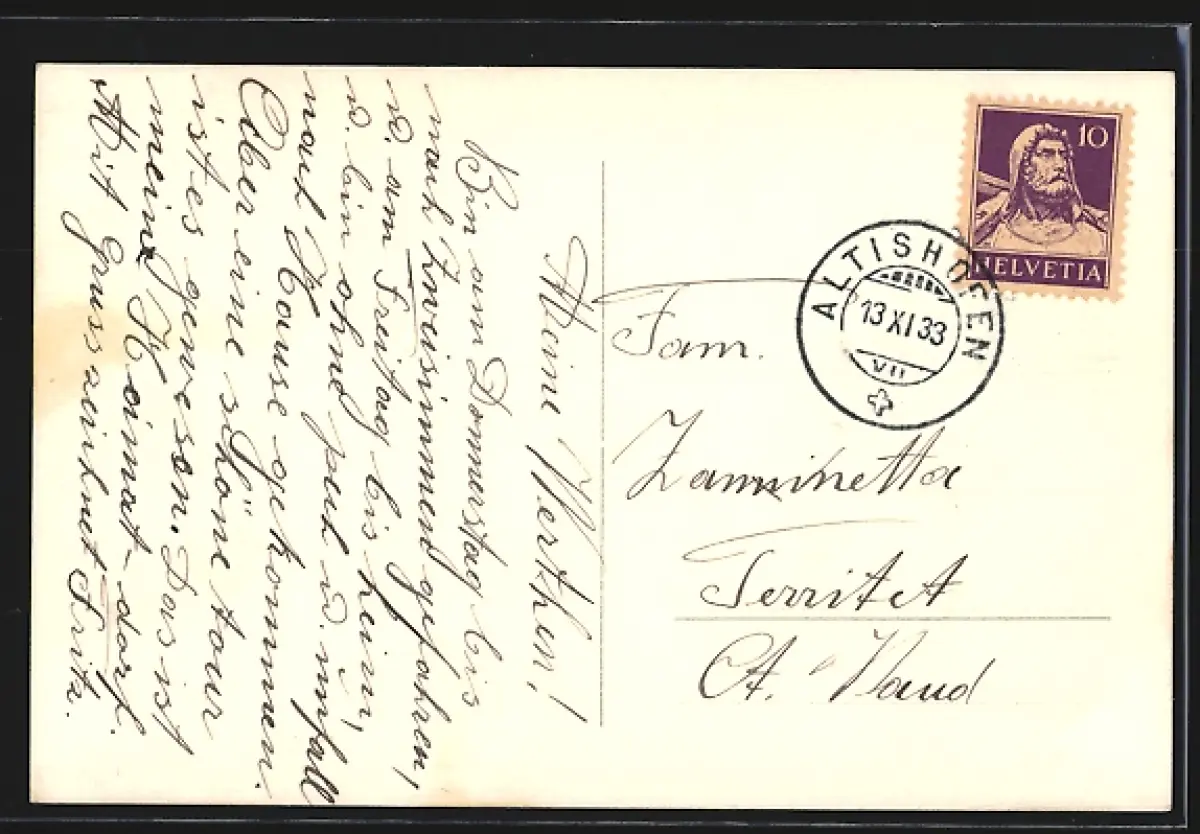 Meine Werthen!
Bin am Donnerstag bis
nach Zweisimmend gefahren,
u. am Freitag bis heim,
u. bin ohne peut u. unfall
nach Hause gekommen.
Aber eine schöne tour
ist es gewesen. Das ist
meind Heimat-dorf.
Mit Gruss zeichnet Fritz.
10
HELVETIA
ALTISHOFEN
13 XI 33
VII
Fam.
Zanninetta
Territet
Ct. Vaud